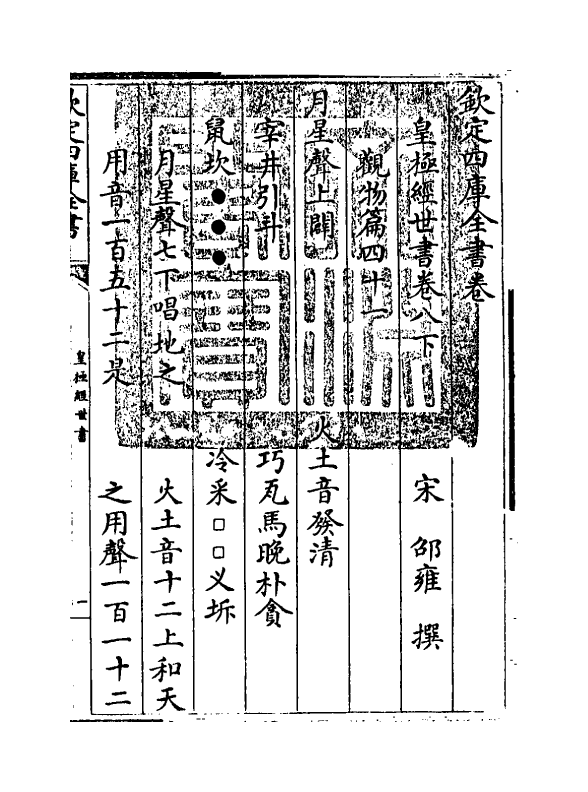 欽定四庫全書卷
皇極經世書卷八下
宋 邵雍 撰
觀物篇四十一
月星聲上闢 火土音發清
宰井引斗 巧瓦馬晚朴貪
鼠坎●●● 冷采□□乂坼
月星聲七下唱地之 火土音十二上和天
用音一百五十二是 之用聲一百一十二
欽定四庫全書
皇極經世書
一